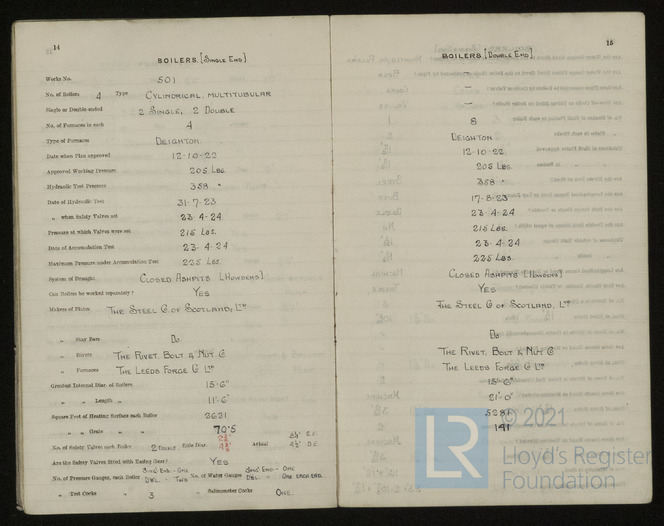 14
BOILERS. [SINGLE END]
Works No. 501
No. of Boilers 4 Type CYLINDRICAL, MULTITUBULAR
Single or Double-ended 2 SINGLE, 2 DOUBLE
No. of Furnaces in each 4
Type of Furnaces DEIGHTON
Date when Plan approved 12-10-22
Approved Working Pressure 205 LBS.
Hydraulic Test Pressure 358 "
Date of Hydraulic Test 31-7-23
" when Safety Valves set 23-4-24
Pressure at which Valves were set 215 LBS.
Date of Accumulation Test 23-4-24
Maximum Pressure under Accumulation Test 225 LBS.
System of Draught CLOSED ASHPITS [HOWDENS]
Can Boilers be worked separately? YES
Makers of Plates THE STEEL Co OF SCOTLAND, LTD
" Stay Bars Do.
" Rivets THE RIVET, BOLT & NUT Co
" Furnaces THE LEEDS FORGE Co LTD
Greatest Internal Diam. of Boilers 15'-6"
" " Length " 11'-6"
Square Feet of Heating Surface each Boiler 2631
" " Grate " " 70.5
No. of Safety Valves each Boiler 2 Rule Diam. Actual 3½" S.E. 4½" D.E.
Are the Safety Valves fitted with Easing Gear? YES
No. of Pressure Gauges, each Boiler SING. END - ONE DBL. " - TWO No. of Water Gauges SING. END - ONE DBL. " - ONE EACH END.
" Test Cocks " 3 " Salinometer Cocks ONE.
15
BOILERS. [DOUBLE END]
—
—
—
8
DEIGHTON
12-10-22
205 LBS.
358 "
17-8-23
23-4-24
215 LBS.
23-4-24
225 LBS.
CLOSED ASHPITS [HOWDENS]
YES
THE STEEL Co OF SCOTLAND, LTD
Do.
THE RIVET, BOLT & NUT Co
THE LEEDS FORGE Co LTD
15'-6"
21'-0"
5281
141
LR
© 2021
Lloyd's Register
Foundation